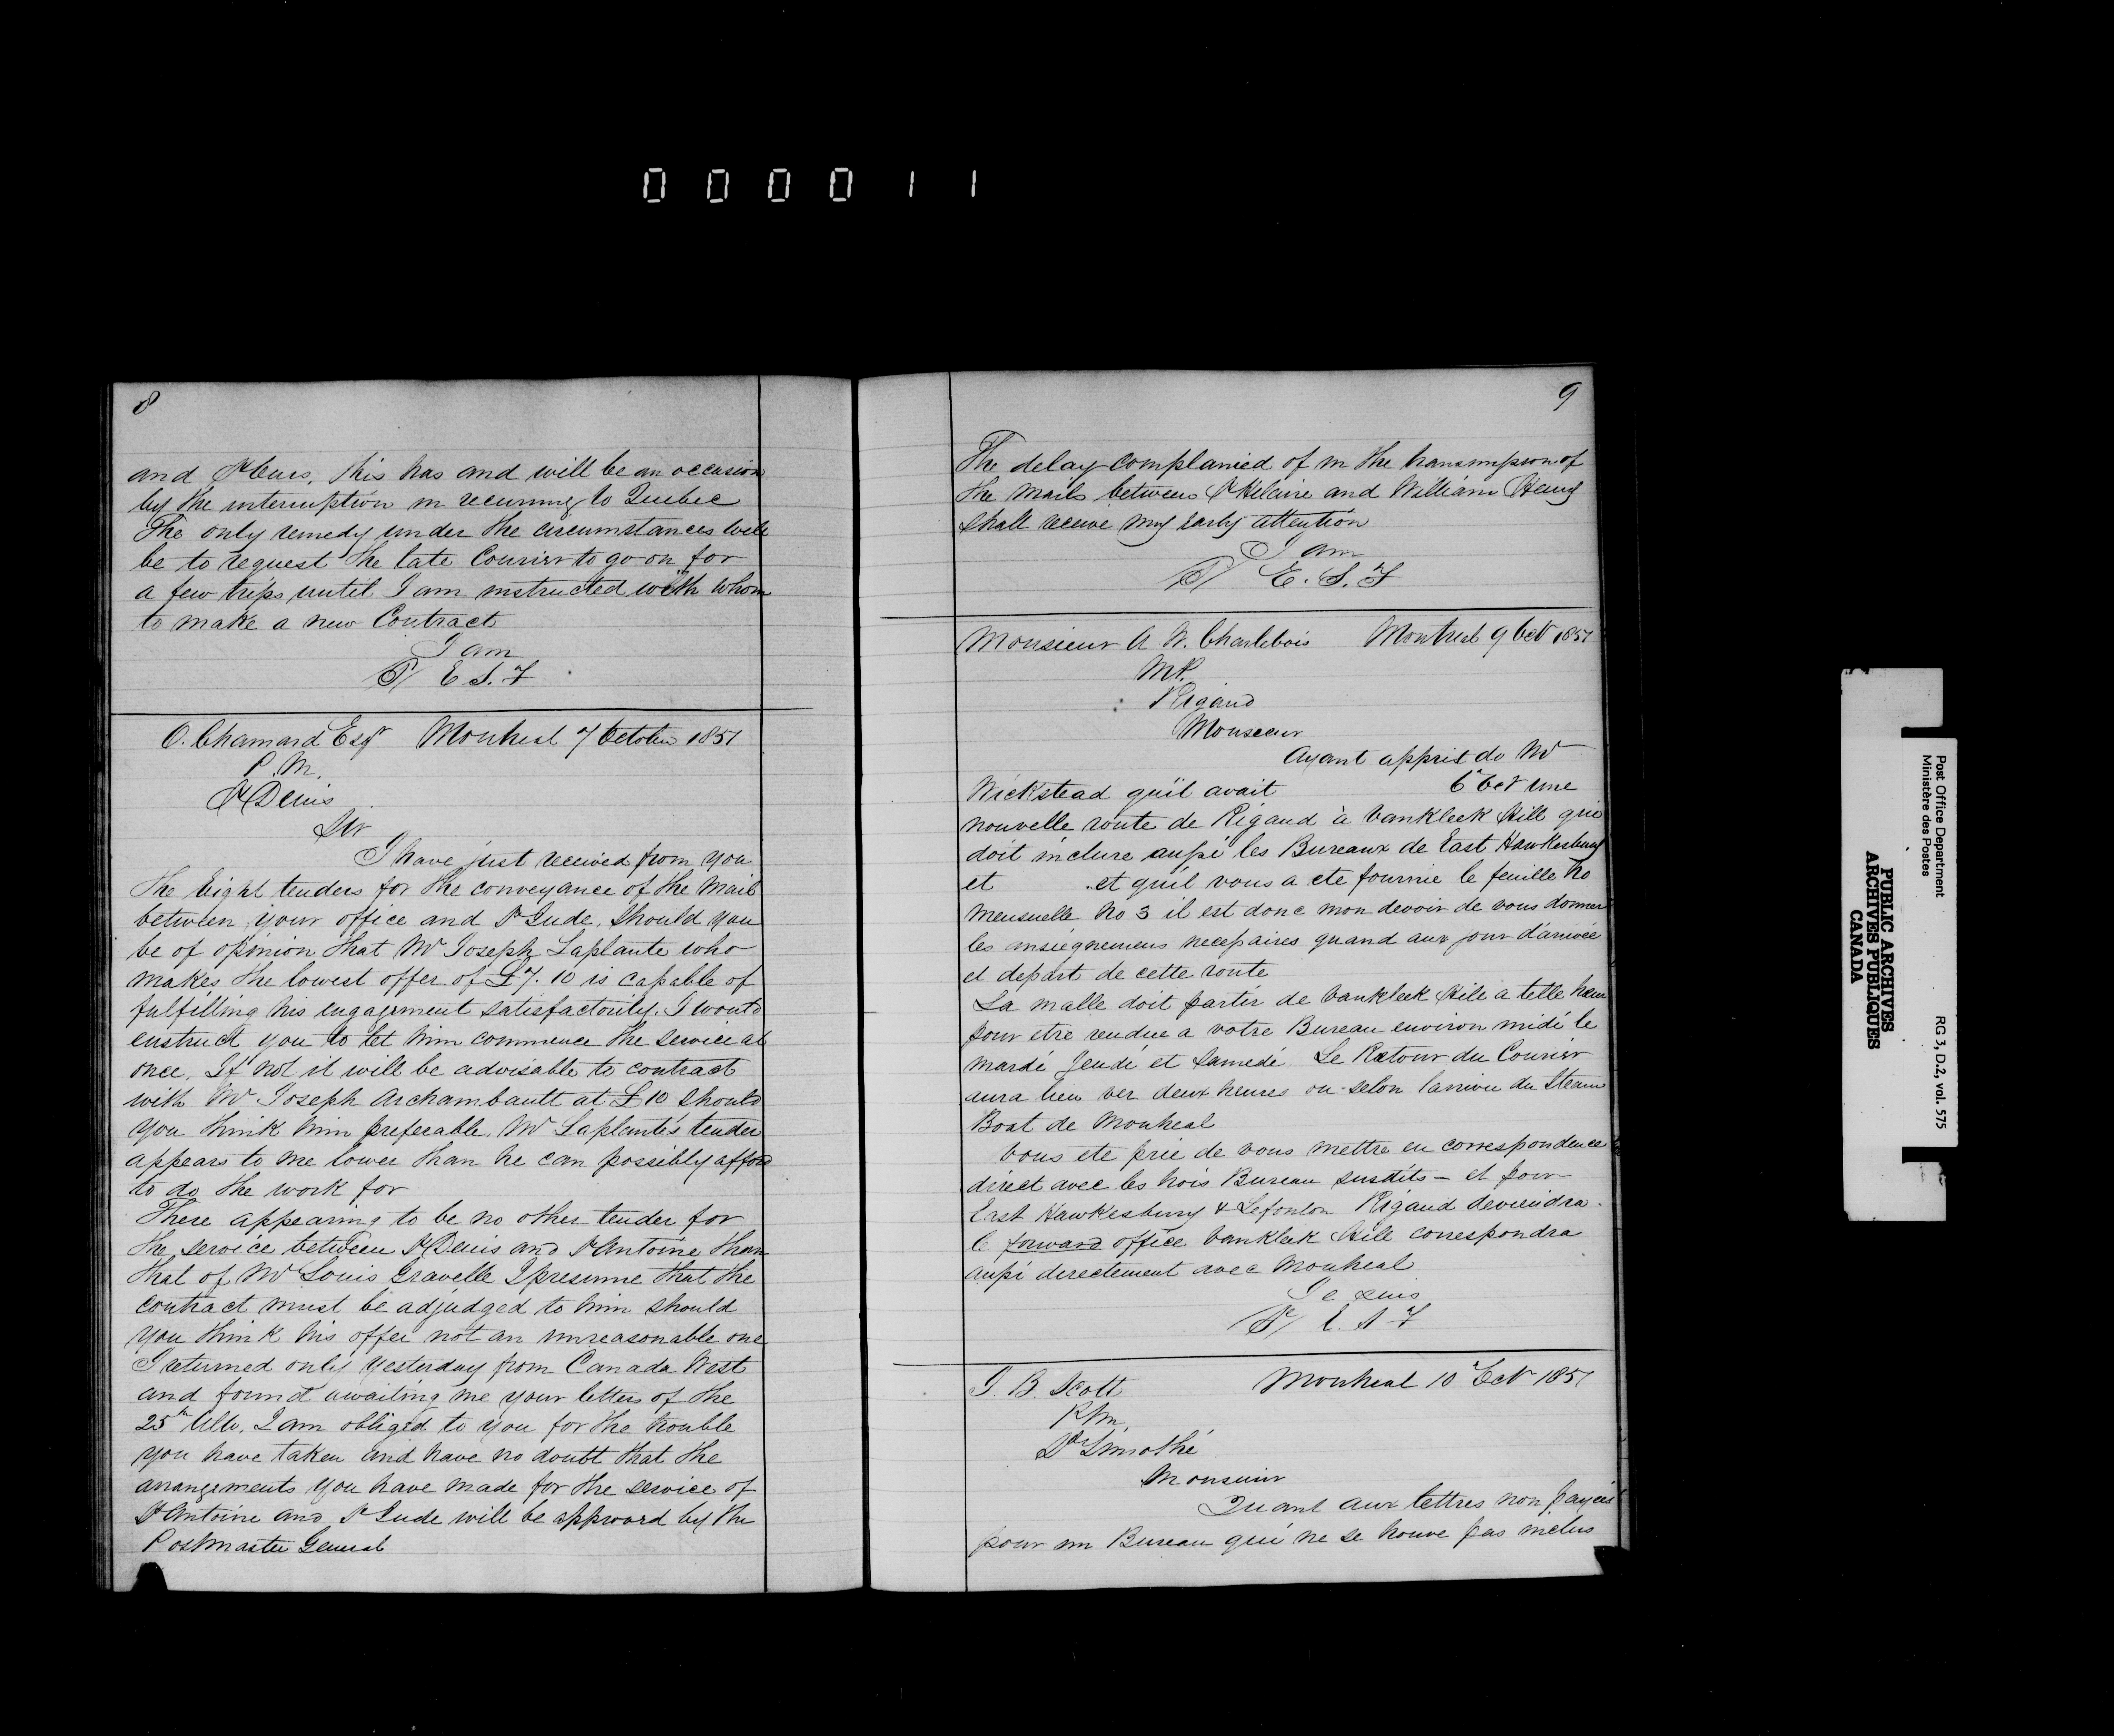 000011
8
and St Ours, this has and will be an occasion
by the interruption in recurring to Quebec
The only remedy under the circumstances will
be to request the late Courier to go on for
a few trips until I am instructed with whom
to make a new Contract
I am
E. S. F
O. Chamard Esqr Montreal 7 October 1851
P. M.
St Denis
Sir
I have just received from you
the Eight tenders for the conveyance of the Mail
between your office and St Jude. Should you
be of opinion that Mr Joseph Laplante who
makes the lowest offer of £7.10 is capable of
fulfilling his engagement satisfactorily. I would
enstruct you to let him commence the service at
once. If not it will be advisable to contract
with Mr Joseph Archambault at £10 should
you think him preferable. Mr Laplante's tender
appears to me lower than he can possibly afford
to do the work for
There appearing to be no other tender for
the service between St Denis and St Antoine than
that of Mr Louis Gravelle I presume that the
contract must be adjudged to him should
you think his offer not an unreasonable one
I returned only yesterday from Canada West
and found awaiting me your letters of the
25th Ulto. I am obliged to you for the trouble
you have taken and have no doubt that the
arrangements you have made for the service of
St Antoine and St Jude will be approved by the
Postmaster General
9
The delay complained of in the transmission of
the Mails between St Hilaire and William Henry
shall receive my early attention
I am
E. S. F
Monsieur A. W. Charlebois Montreal 9 Oct 1851
Rigaud
Monsieur
Ayant appris de Mr
Wickstead qu'il avait 6 Oct une
nouvelle route de Rigaud à Vankleek Hill qui
doit inclure aussi les Bureaux de East Hawkesbury
et et qu'il vous a ete fournie le feuille No
mensuelle No 3 il est donc mon devoir de vous donner
les ensiegnemens necessaires quand aux jour d'arrivée
et depart de cette route
La malle doit partir de Vankleek Hill a telle heur
pour etre rendue a votre Bureau environ midi le
mardi Jeudi et Samedi Le Retour du Courier
aura lieu ver deux heures ou selon larrivee du Steam
Boat de Montreal
Vous ete prie de vous mettre en correspondence
direct avec les trois Bureau susdits - et pour
East Hawkesbury & Lefonlon Rigaud deviendra
le forward office Vankleek Hill correspondra
aussi derectement avec Montreal
Je suis
E. S. F
J. B. Scott Montreal 10 Oct 1851
P M.
St Timothé
Monsieur
Quant aux lettres non payeés
pour un Bureau qui ne se trouve pas inclus
Post Office Department
Ministère des Postes
RG 3, D.2, vol. 575
PUBLIC ARCHIVES
ARCHIVES PUBLIQUES
CANADA